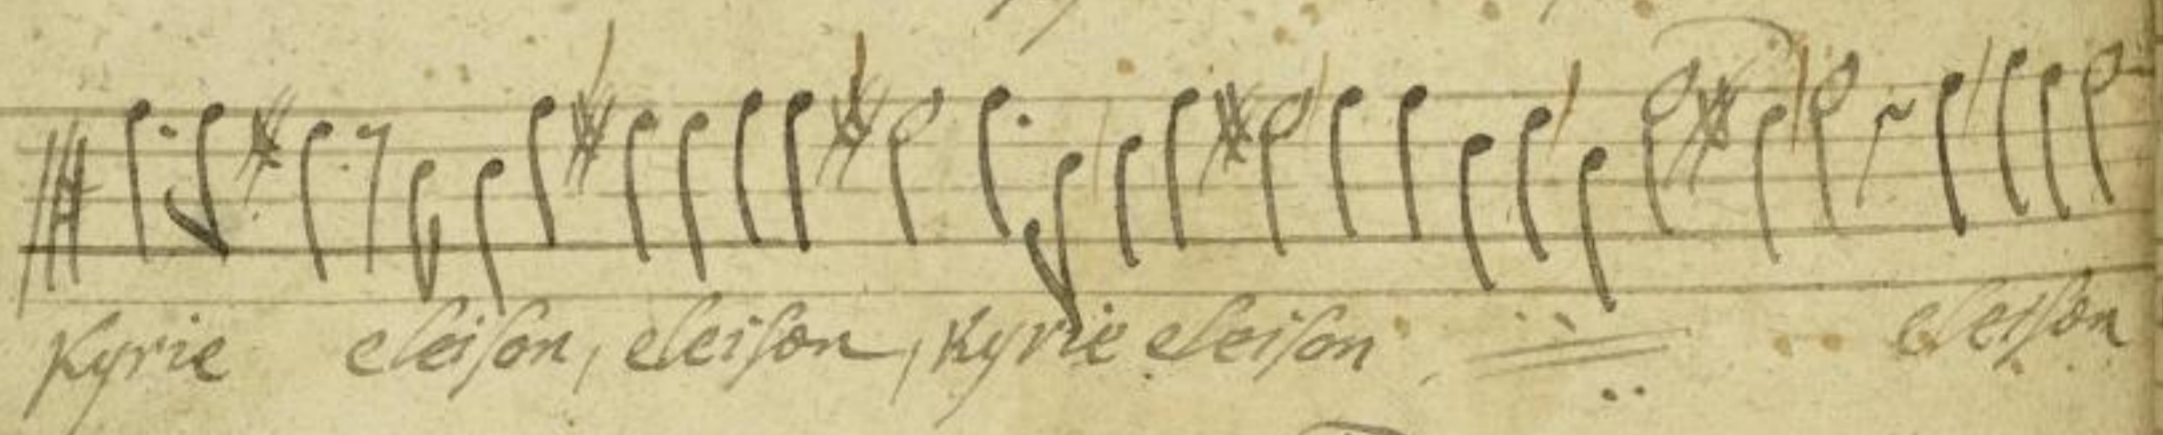 Kyrie eleiſon, eleiſon, Kyrie eleiſon eleiſon